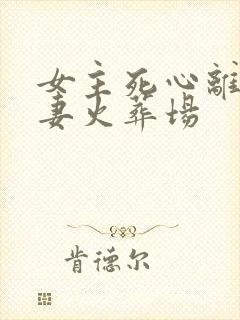 女主死心離
妻火葬场
肯德尔